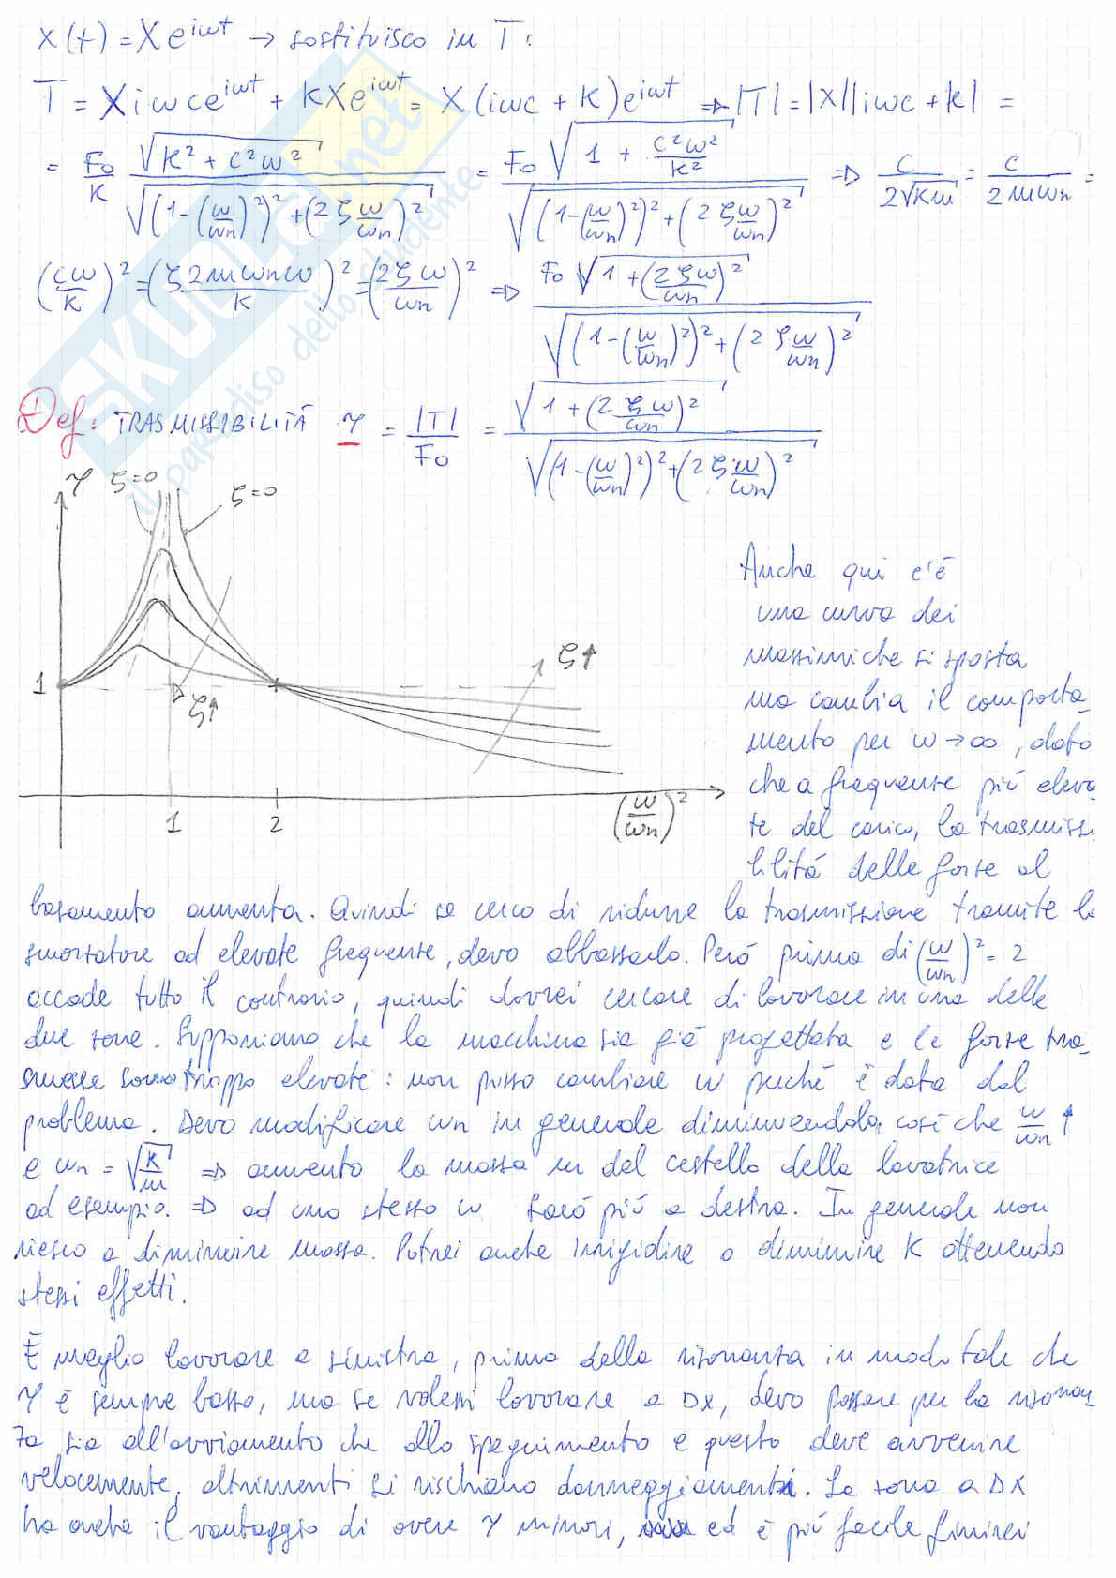 x(t) = X e^{iωt} → sostituisco in T:
T = X i ω c e^{iωt} + k X e^{iωt} = X (iωc + k) e^{iωt} ⇒ |T| = |X| |iωc + k| =
= F₀/k √(k² + c²ω²) / √((1-(ω/ωn)²)² + (2ζ ω/ωn)²) = F₀ √(1 + c²ω²/k²) / √((1-(ω/ωn)²)² + (2ζω/ωn)²) ⇒ c/(2√km) = c/(2mωn) =
(cω/k)² = (ζ2mωnω/k)² = (2ζω/ωn)² ⇒ F₀ √(1 + (2ζω/ωn)²) / √((1-(ω/ωn)²)² + (2ζω/ωn)²)
Def: TRASMISSIBILITÁ τ = |T|/F₀ = √(1 + (2ζω/ωn)²) / √((1-(ω/ωn)²)² + (2ζω/ωn)²)
τ ζ=0 ζ=0
1
ζ↑
ζ↑
1 2 (ω/ωn)²
Anche qui c'è
una curva dei
massimi che si sposta
ma cambia il comporta-
mento per ω → ∞, dato
che a frequenze più eleva
te del carico, la trasmissi
bilitá delle forze al
basamento aumenta. Quindi se cerco di ridurre la trasmissione tramite lo
smorzatore ad elevate frequenze, devo abbassarlo. Peró prima di (ω/ωn)² = 2
accade tutto il contrario, quindi dovrei cercare di lavorare in una delle
due zone. Supponiamo che la macchina sia giá progettata e le forze tra-
smesse sono troppo elevate: non posso cambiare ω perché é dato dal
problema. Devo modificare ωn in generale diminuendola, cosí che ω/ωn ↑
e ωn = √(k/m) ⇒ aumento la massa m del cestello della lavatrice
ad esempio. ⇒ ad uno stesso ω saró piú a destra. In generale non
riesco a diminuire massa. Potrei anche irrigidire o diminuire K ottenendo
stessi effetti.
É meglio lavorare a sinistra, prima della risonanza in modo tale che
τ é sempre basso, ma se volessi lavorare a DX, devo passare per la risonan
za sia all'avviamento che allo spegnimento e questo deve avvenire
velocemente, altrimenti si rischiano danneggiamenti. La zona a DX
ha anche il vantaggio di avere τ minori, ed é piú facile finirci
SKUOLA.net
il paradiso dello studente